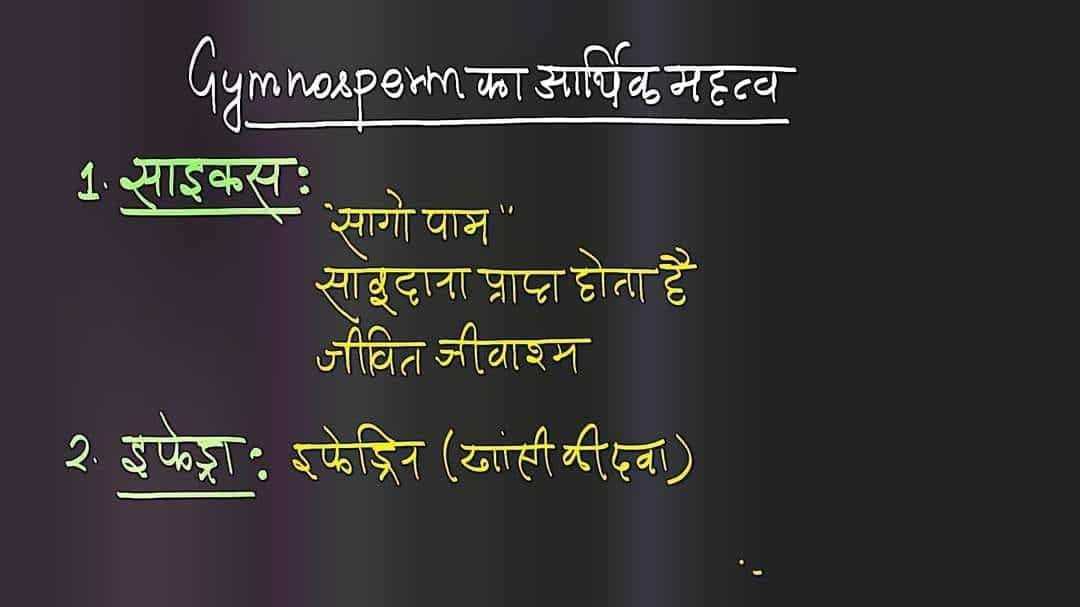 Gymnosperm का आर्थिक महत्व
1. साइकस :
"सागो पाम"
साबुदाना प्राप्त होता है
जीवित जीवाश्म
2. इफेड्रा : इफेड्रिन (खांसी की दवा)